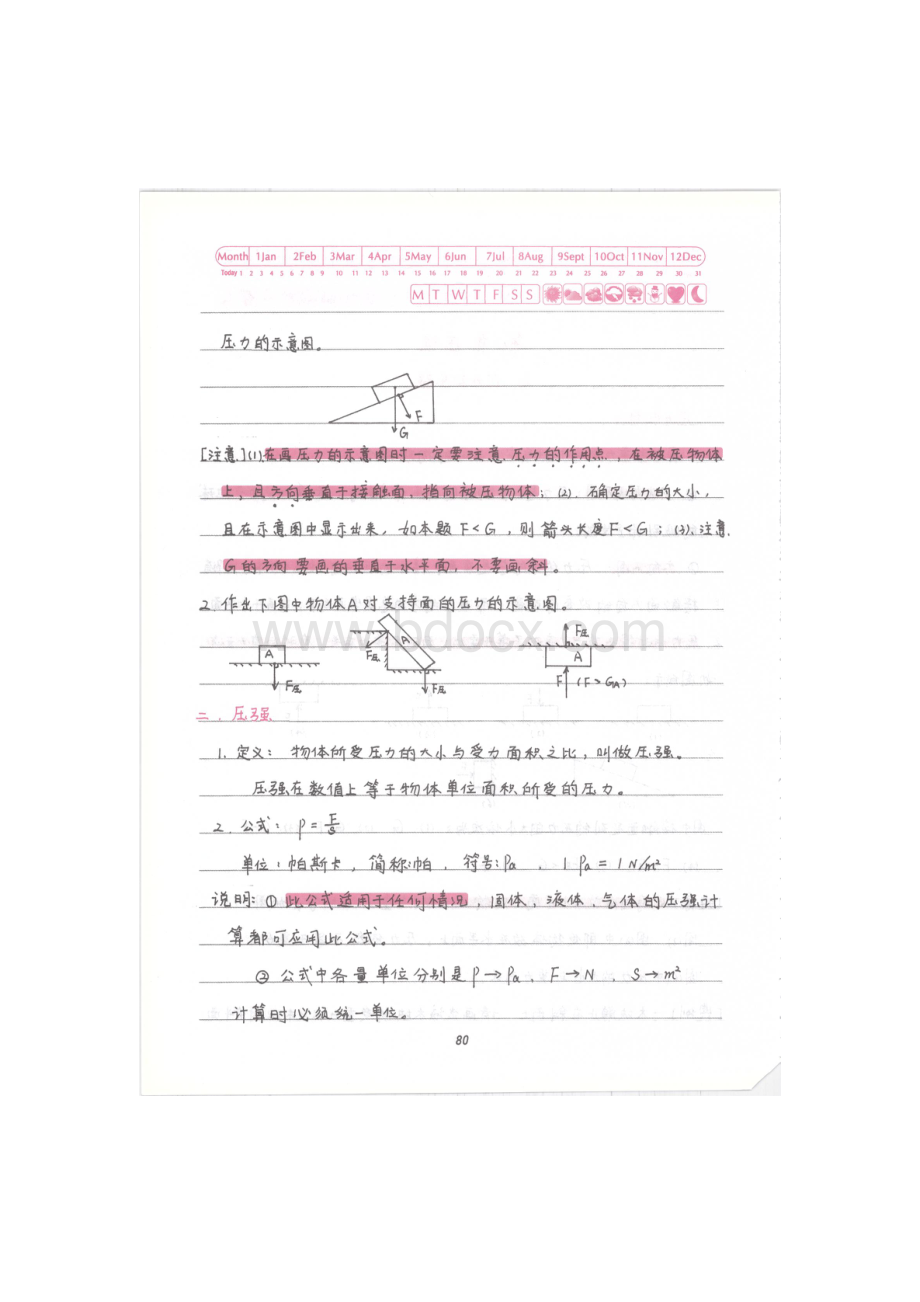 Month 1Jan 2Feb 3Mar 4Apr 5May 6Jun 7Jul 8Aug 9Sept 10Oct 11Nov 12Dec
Today 1 2 3 4 5 6 7 8 9 10 11 12 13 14 15 16 17 18 19 20 21 22 23 24 25 26 27 28 29 30 31
M T W T F S S
压力的示意图。
F
G
[注意](1).在画压力的示意图时一定要注意.压力的作用点,在被压物体
上,且方向垂直于接触面,指向被压物体;(2).确定压力的大小,
且在示意图中显示出来,如本题F<G,则箭头长度F<G;(3).注意.
G的方向要画的垂直于水平面,不要画斜。
2.作出下图中物体A对支持面的压力的示意图。
www.bdocx.com
A F压
F压 A F压
F压 A F (F>GA)
二.压强
1.定义:物体所受压力的大小与受力面积之比,叫做压强。
压强在数值上等于物体单位面积所受的压力。
2.公式:p=F/S
单位:帕斯卡,简称:帕.符号:Pa.1Pa=1N/m²
说明:①此公式适用于任何情况,固体,液体、气体的压强计
算都可应用此公式。
②公式中各量单位分别是p→Pa、F→N、S→m²
计算时必须统一单位。
80